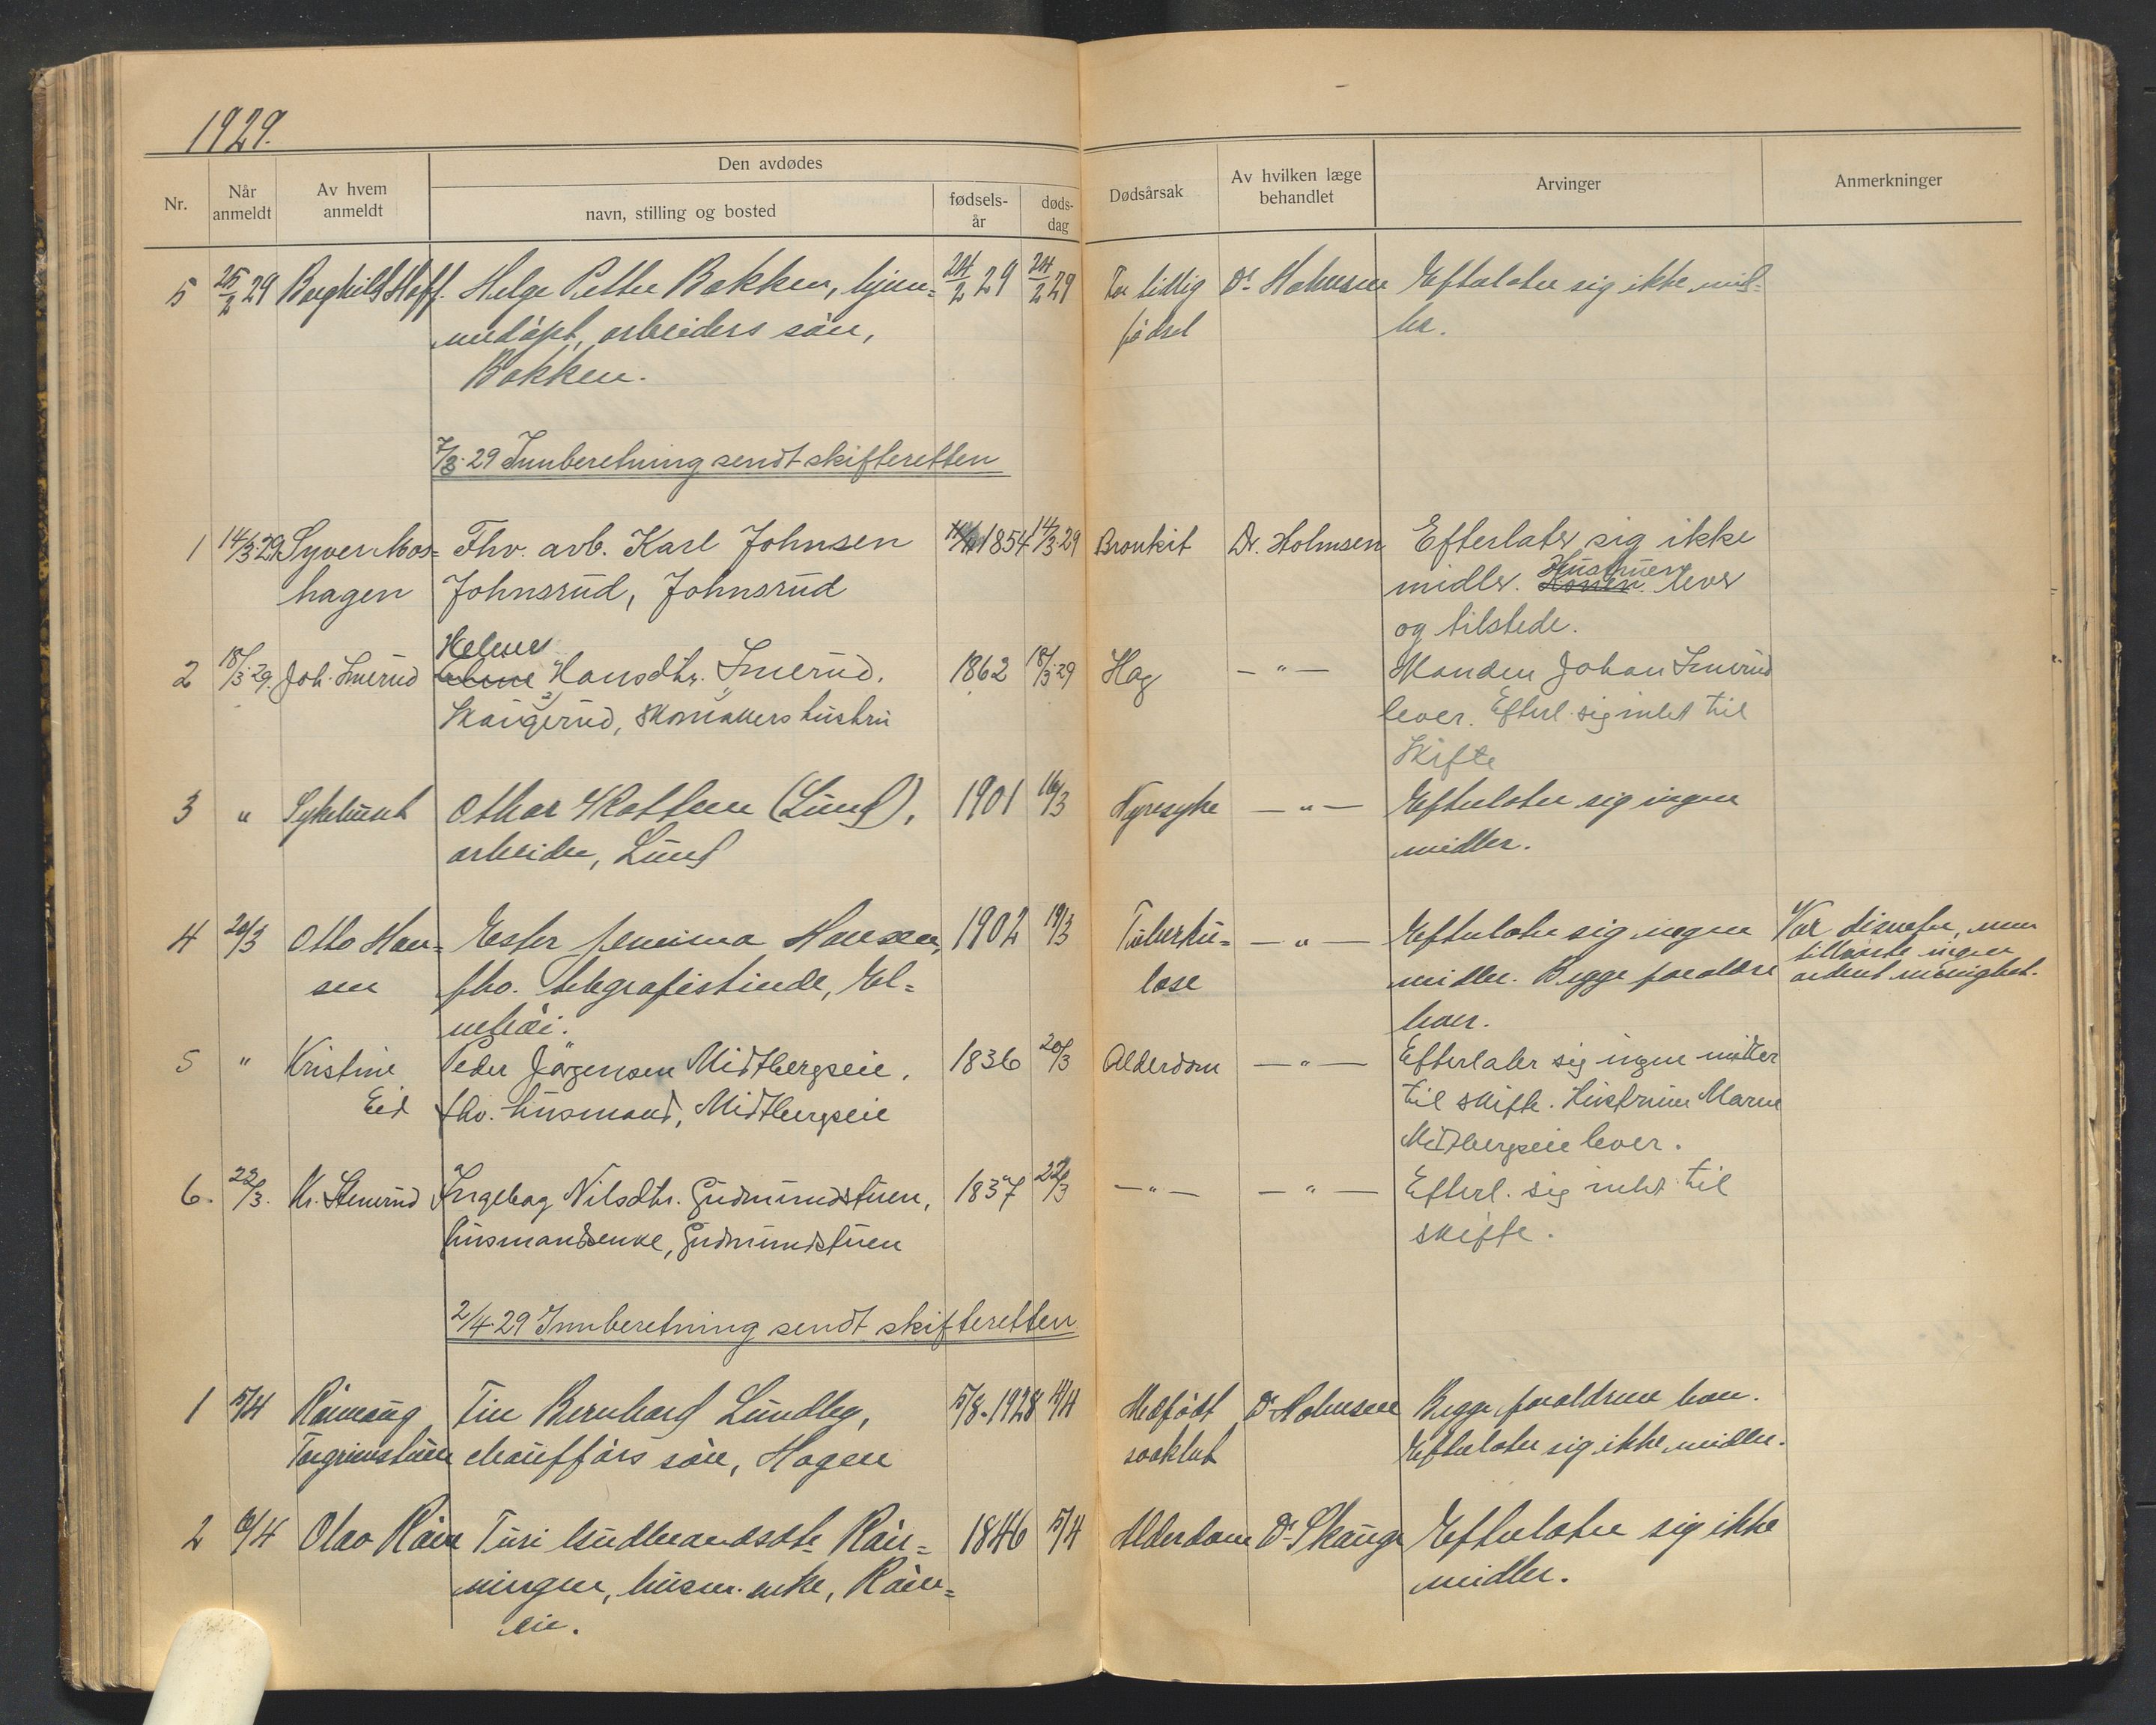 1929.
Den avdødes
Nr.
Når anmeldt
Av hvem anmeldt
navn, stilling og bosted
fødsels-år
døds-dag
Dødsårsak
Av hvilken læge behandlet
Arvinger
Anmerkninger
5 25/2 29 Borghild Hoff. Helge Petter Bakken, hjem= 24/2 29 24/2 29 For tidlig Dr. Holmsen Efterlater sig ikke mid=
medøpt, arbeiders søn, fødsel ler.
Bakken.
7/3-29 Innberetning sendt skifteretten
1 14/3 29 Syver Mos= Fhv. arb. Karl Johnsen 1854 14/3 29 Bronkit Dr. Holmsen Efterlater sig ikke
hagen Johnsrud, Johnsrud midler. Hustruen lever
og tilstede.
Helene
2 18/3 29. Joh. Smerud Hansdtr. Smerud. 1862 18/3 29 Hag — " — Manden Johan Smerud
Skaugerud, skomakers hustru lever. Efterl. sig intet til
Skifte
3 " Othar (Lund), 1901 16/3 Nyresyke — " — Efterlater sig ingen
arbeider, Lund midler.
4 20/3 Otto Han= Ester Jemima Hansen, 1902 19/3 Tuberku= — " — Efterlater sig ingen Var dismeter, men
sen fhv. telegrafistinde, El= lose midler. Begge foreldre tilhørte ingen
nehøi. lever. ordent menighet.
5 " Kristine Peder Jørgensen Midtbergseie, 1836 20/3 Alderdom — " — Efterlater sig ingen midler
Eid fhv. husmand, Midtbergseie til skifte. Hustruen Maren
Midtbergseie lever.
6. 22/3. Kr. Stenerud Ingebog Nilsdtr. Gudmundstuen, 1837 22/3 — " — — " — Efterl. sig intet til
husmandsenke, Gudmundstuen skifte.
2/4-29 Innberetning sendt skifteretten
1 5/4 Bernhard Lundby, 5/8-1928 4/4 Medfødt Dr. Holmsen Begge foreldrene lever.
Torgrimstuen chaufførs søn, Hagen svakhet Efterlater sig ikke midler.
2 6/4 Olav Turi Gudbrandsdtr. 1846 5/4 Alderdom Dr. Skauge Efterlater sig ikke
ningen, husm. enke, midler.
eie.